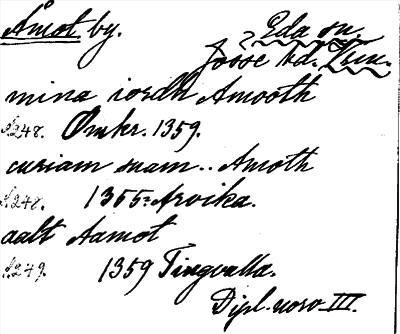 Åmot by. Eda sn.
? Jösse hd. Vrm.
mina iordh Amooth
S. 248. Omkr. 1359.
curiam suam .. Amoth
S. 248. 1355: Arvika.
aalt Aamot
S. 249. 1359 Tingvalla.
Dipl. norv. III.